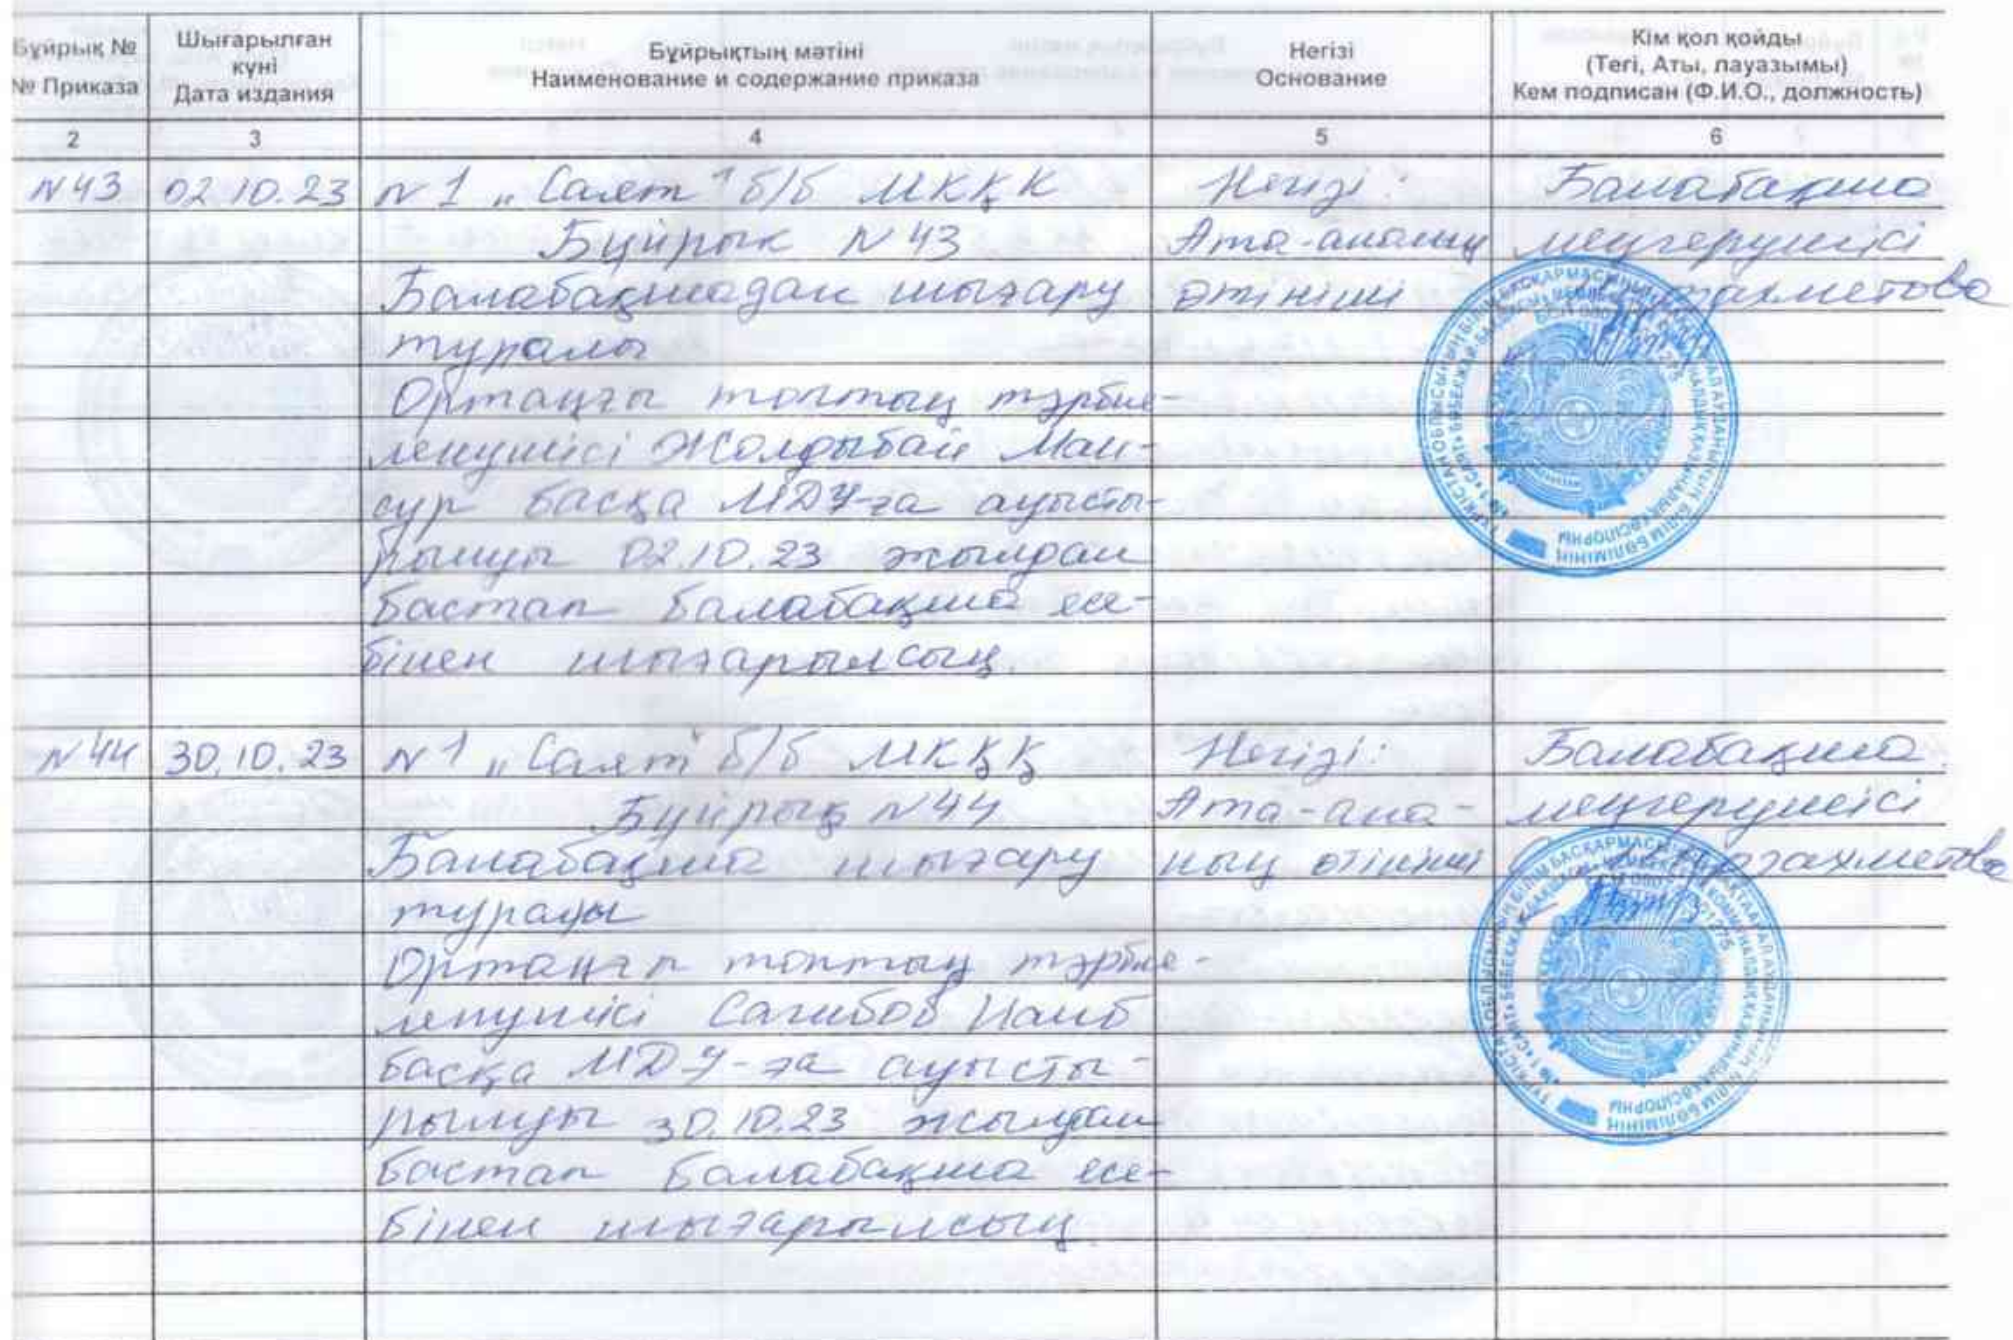 Бұйрық №
№ Приказа
Шығарылған
күні
Дата издания
Бұйрықтың мәтіні
Наименование и содержание приказа
Негізі
Основание
Кім қол қойды
(Тегі, Аты, лауазымы)
Кем подписан (Ф.И.О., должность)
2 3 4 5 6
N43 02.10.23 N1 „Саят" б/б МКҚК
Бұйрық N43
Балабақшадан шығару
туралы
Ортаңғы топтың тәрбие-
ленушісі Жолдыбай Ман-
сур басқа МДҰ-ға ауысты-
рылуы 02.10.23 жылдан
бастап балабақша есе-
бінен шығарылсын
Негізі:
Ата-аның
өтініші
Балабақша
меңгерушісі
N44 30.10.23 N1 „Саят" б/б МКҚҚ
Бұйрық N44
Балабақша шығару
туралы
Ортаңғы топтың тәрбие-
ленушісі Сагибов Наиб
басқа МДҰ-ға ауысты-
рылуы 30.10.23 жылдан
бастап балабақша есе-
бінен шығарылсың
Негізі:
Ата-ана-
ның өтініші
Балабақша
меңгерушісі